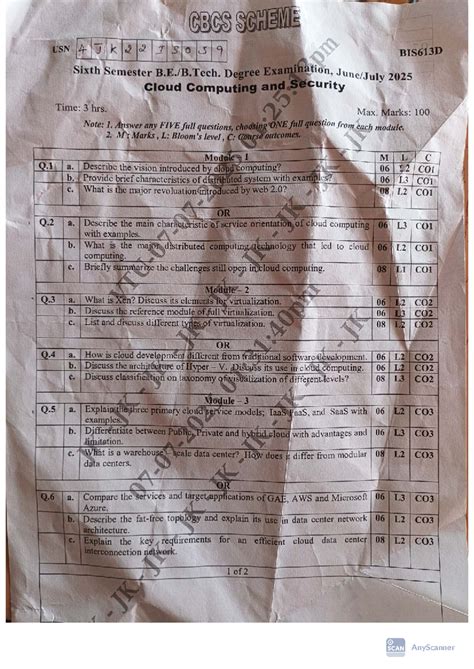 CBCS SCHEME
USN 4JK22IS039
BIS613D
Sixth Semester B.E./B.Tech. Degree Examination, June/July 2025
Cloud Computing and Security
Time: 3 hrs.
Max. Marks: 100
Note: 1. Answer any FIVE full questions, choosing ONE full question from each module.
2. M : Marks , L: Bloom's level , C: Course outcomes.
Module – 1 M L C
Q.1 a. Describe the vision introduced by cloud computing? 06 L2 CO1
b. Provide brief characteristics of distributed system with examples? 06 L3 CO1
c. What is the major revoluation introduced by web 2.0? 08 L2 CO1
OR
Q.2 a. Describe the main characteristic of service orientation of cloud computing 06 L3 CO1
with examples.
b. What is the major distributed computing technology that led to cloud 06 L2 CO1
computing.
c. Briefly summarize the challenges still open in cloud computing. 08 L1 CO1
Module – 2
Q.3 a. What is Xen? Discuss its elements for virtualization. 06 L2 CO2
b. Discuss the reference model of full virtualization. 06 L3 CO2
c. List and discuss different types of virtualization. 08 L2 CO2
OR
Q.4 a. How is cloud development different from traditional software development. 06 L2 CO2
b. Discuss the architecture of Hyper – V. Discuss its use in cloud computing. 06 L2 CO2
c. Discuss classification on taxonomy of visualization of different levels? 08 L3 CO2
Module – 3
Q.5 a. Explain the three primary cloud service models; IaaS PaaS, and SaaS with 06 L2 CO3
examples.
b. Differentiate between Public, Private and hybrid cloud with advantages and 06 L3 CO3
limitation.
c. What is a warehouse – scale data center? How does it differ from modular 08 L2 CO3
data centers.
OR
Q.6 a. Compare the services and target applications of GAE, AWS and Microsoft 06 L3 CO3
Azure.
b. Describe the fat-free topology and explain its use in data center network 06 L2 CO3
architecture.
c. Explain the key requirements for an efficient cloud data center 08 L2 CO3
interconnection network.
1 of 2
SCAN AnyScanner